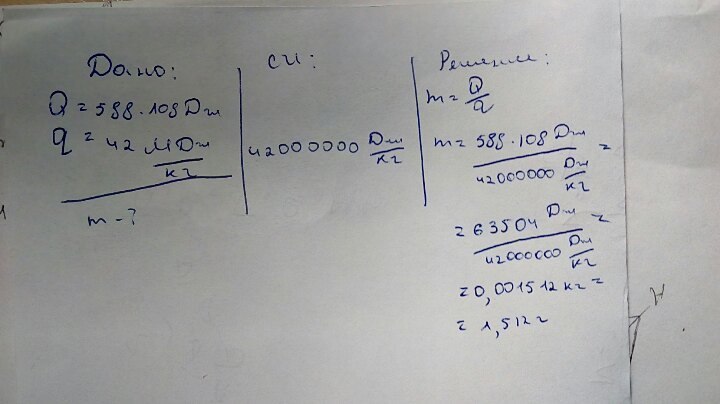 Дано:
Q = 588·108 Дж
q = 42 МДж/кг
m - ?
СИ:
42000000 Дж/кг
Решение:
m = Q/q
m = 588·108 Дж / 42000000 Дж/кг =
= 63504 Дж / 42000000 Дж/кг =
= 0,001512 кг =
= 1,512 г